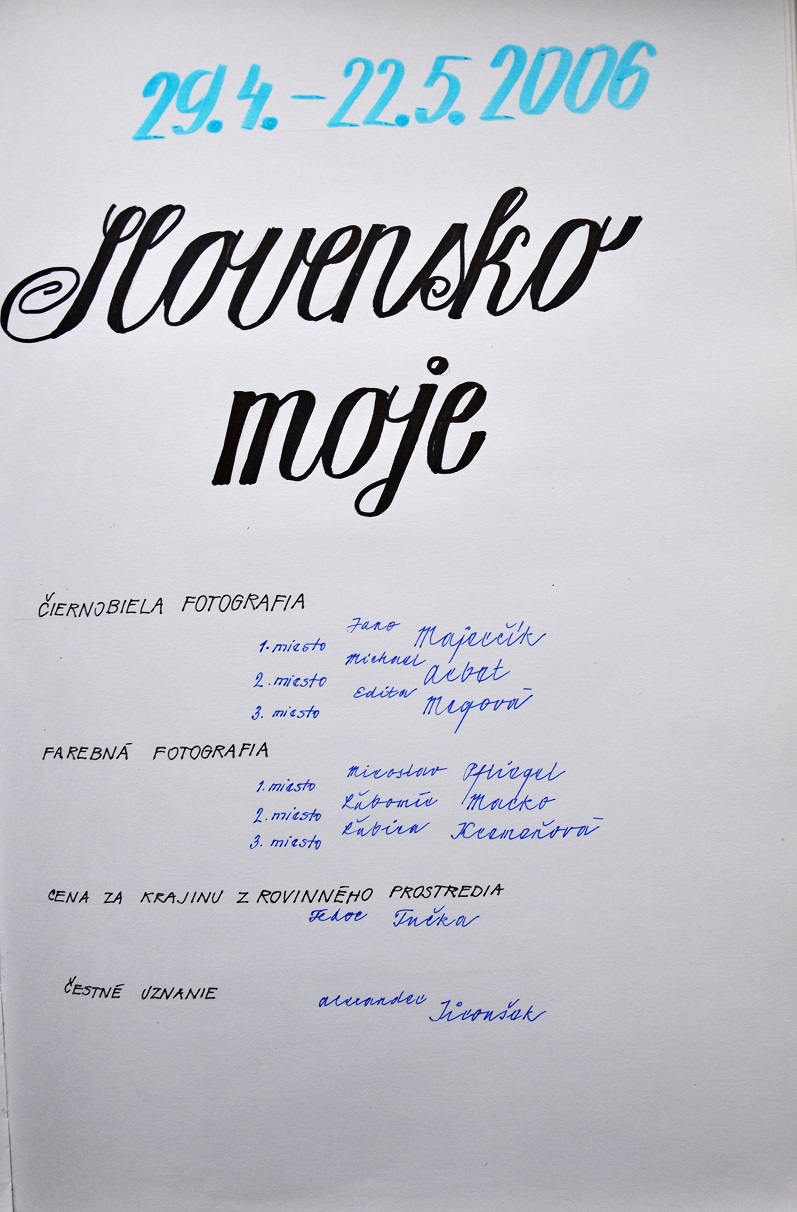 29.4. – 22.5. 2006
Slovensko
moje
ČIERNOBIELA FOTOGRAFIA
1. miesto Jano Majerčík
2. miesto Michael
3. miesto Edita Megová
FAREBNÁ FOTOGRAFIA
1. miesto Miroslav Pfliegel
2. miesto Ľubomír Macko
3. miesto Ľubica Kremeňová
CENA ZA KRAJINU Z ROVINNÉHO PROSTREDIA
Fedor Tučka
ČESTNÉ UZNANIE
Alexander Jiroušek